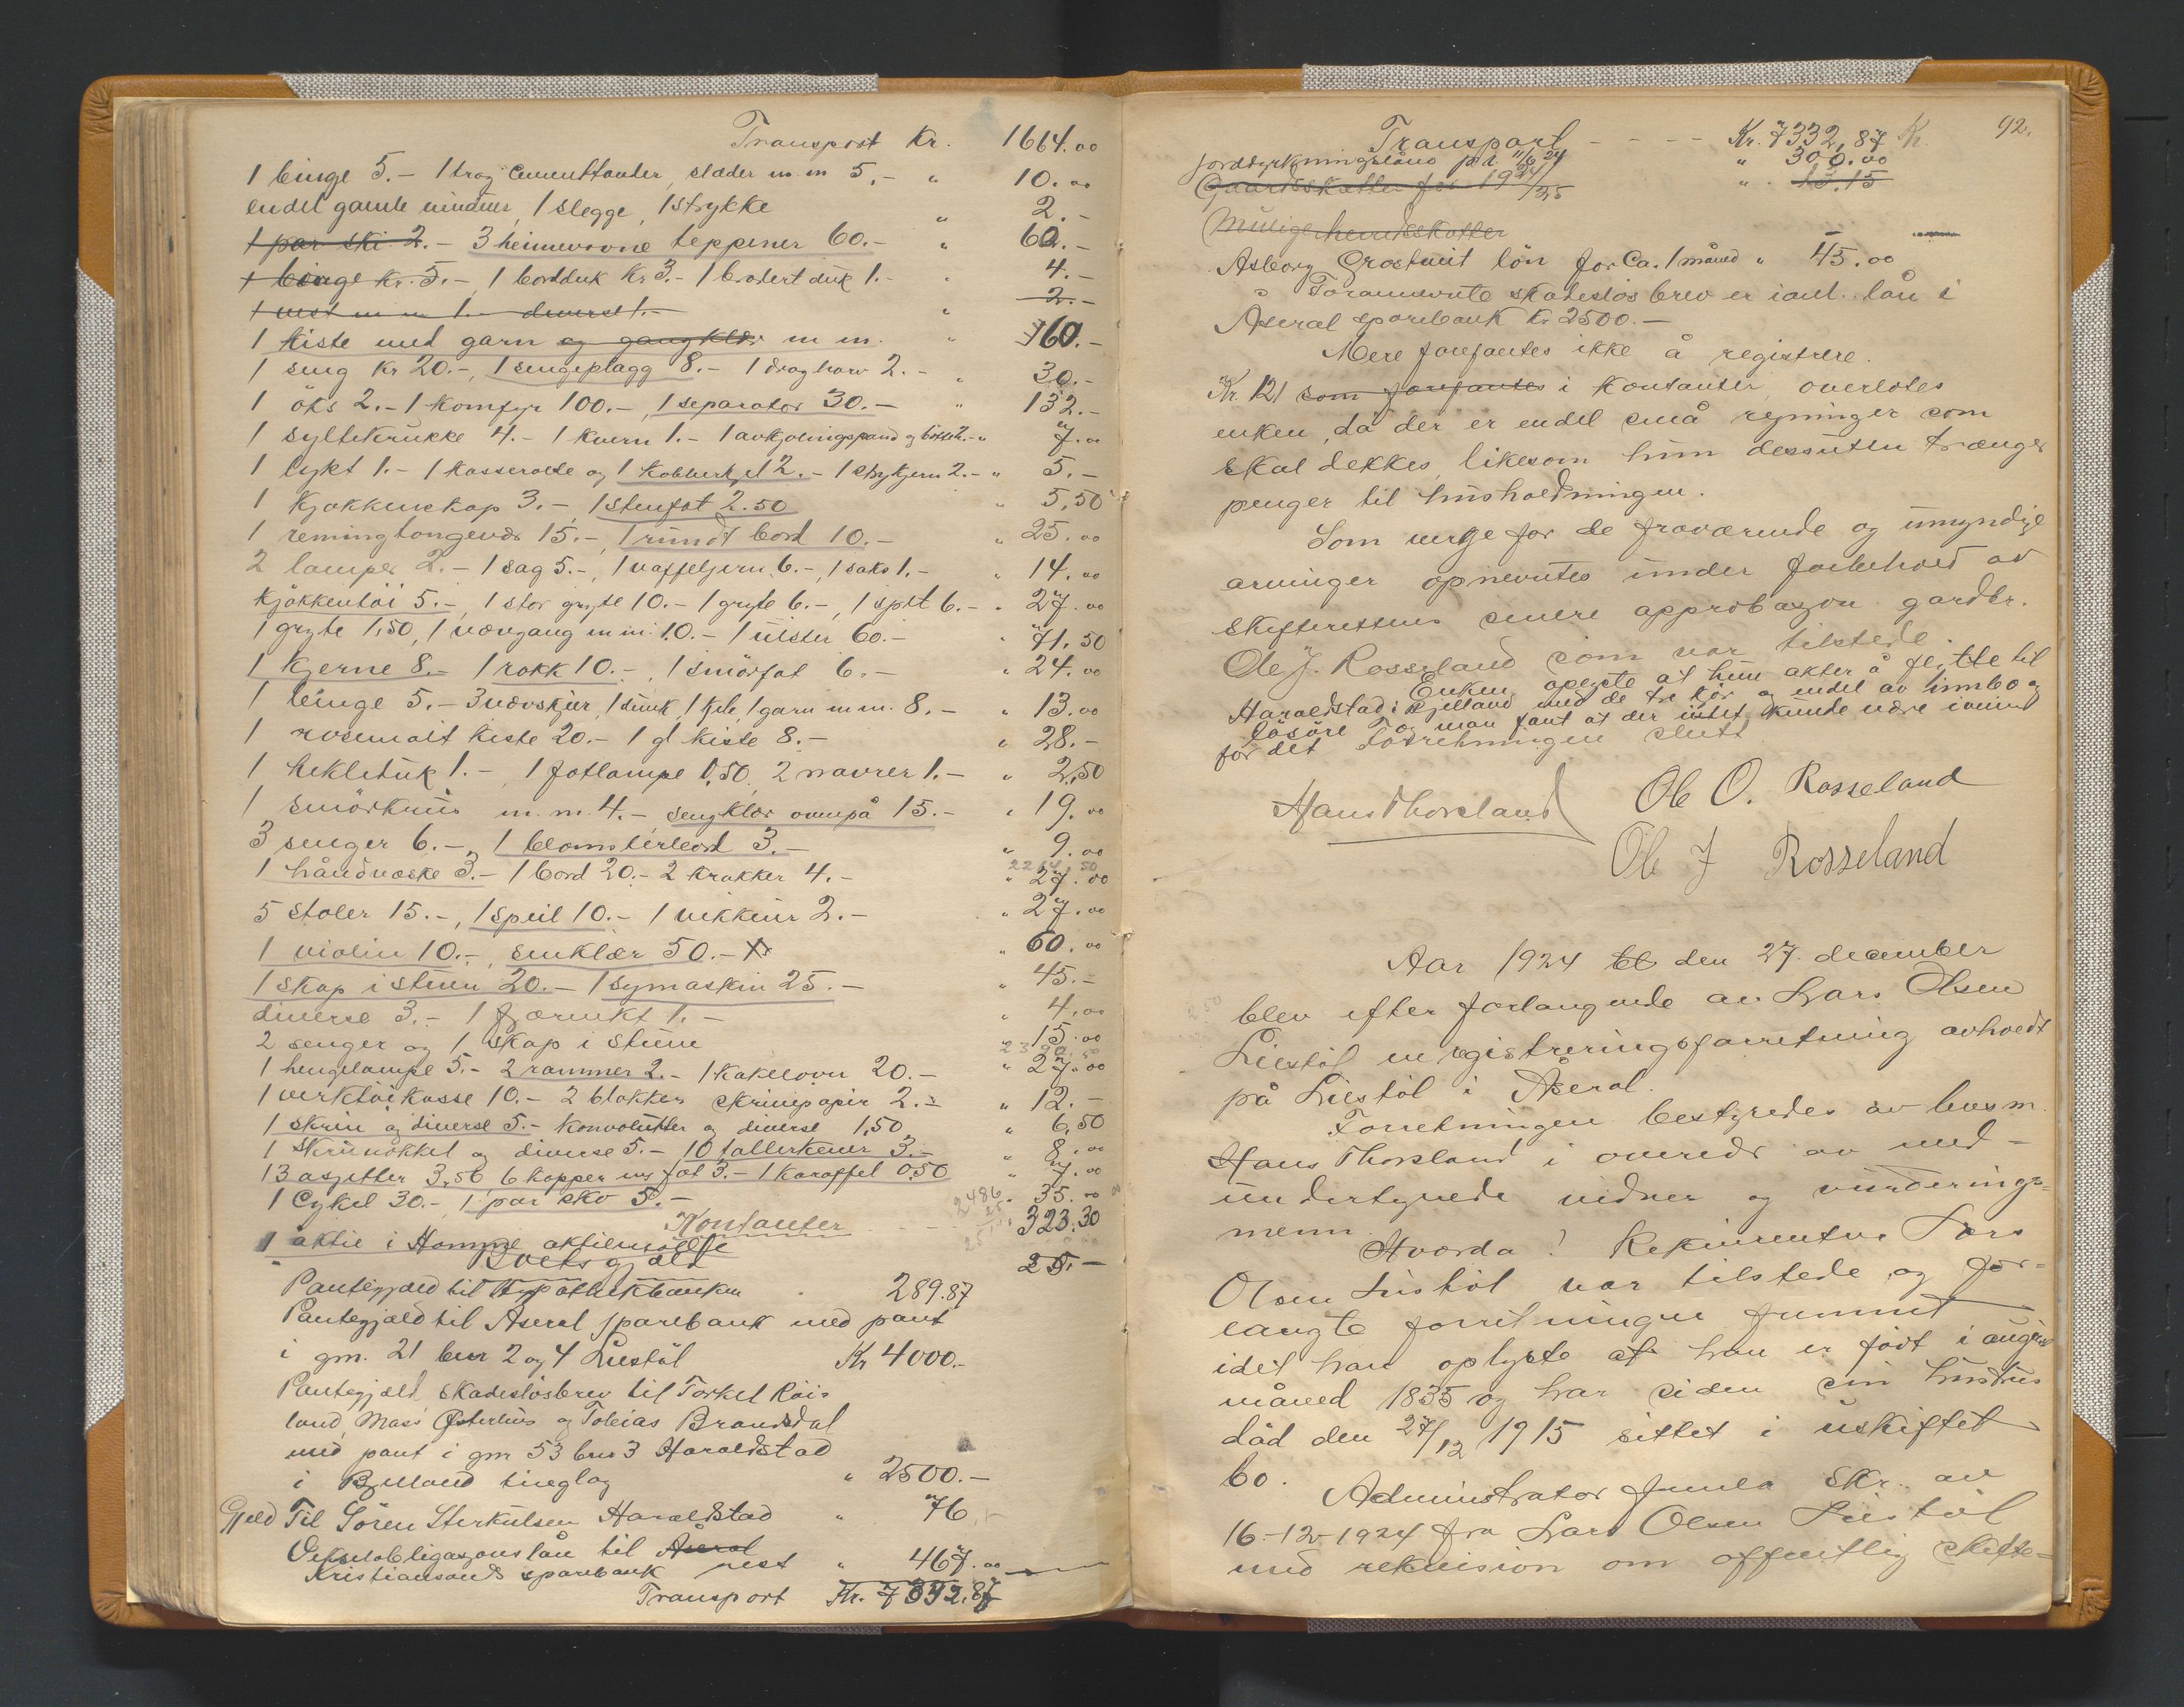 Transport Kr. 1664.00
1 binge 5.- 1 trog cementtønder, slæder m.m 5,- " 10.00
endel gamle vinduer, 1 slegge, 1 strykke " 2.-
1 par ski 2.- 3 heimevovne teppener 60.- " 60.-
1 binge Kr. 5.-, 1 bordduk Kr 3.- 1 brodert duk 1.- " 4.-
1 vest m m 1.- diverse 1.- " 2.-
1 kiste med garn og gangklær m m. " 60.-
1 seng Kr 20.-, 1 sengeplagg 8.- 1 draghorv 2.- " 30.-
1 öks 2.- 1 komfyr 100.-, 1 separator 30.- " 132.-
1 syltekrukke 4.- 1 kvern 1.- 1 avkjølingspand og bötte 2.- " 7.00
1 lykt 1.- 1 kasserolle og 1 kobberkjel 2.- 1 strykjern 2.- " 5.-
1 kjøkkenskap 3.-, 1 stenfat 2.50 " 5,50
1 remingtongevær 15.-, 1 rundt bord 10.- " 25.00
2 lamper 2.- 1 sag 5.-, 1 vaffeljern 6.-, 1 saks 1.- " 14.00
Kjökkentöi 5.-, 1 stor gryte 10.- 1 gryte 6.-, 1 splt 6.- " 27.00
1 gryte 1,50, 1 vævgang m.m. 10.- 1 ulster 60.- " 71,50
1 kjerne 8.- 1 rokk 10.-, 1 smörfat 6.- " 24.00
1 binge 5.- 3 vævskjeer, 1 dunk, 1 fele, 1 garn m m. 8.- " 13.00
1 rosemalt kiste 20.- 1 gl kiste 8.- " 28.-
1 hekleduk 1.-, 1 fotlampe 0,50, 2 navrer 1.- " 2,50
1 smörkrus m. m. 4.- sengklær ovenpå 15.- " 19.00
3 senger 6.-, 1 blomsterbord 3.- " 9.00
2264,50
1 håndvæske 3.- 1 bord 20.- 2 krakker 4.- " 27.00
5 stoler 15.-, 1 speil 10.- 1 vekkeur 2.- " 27.00
1 violin 10.-, senklær 50.- " 60.00
1 skap i stuen 20.- 1 symaskin 25.- " 45.-
diverse 3.- 1 fjærvekt 1.- " 4.00
2 senger og 1 skap i stuen " 15.00
2390.50
1 hengelampe 5.- 2 rammer 2.- 1 kakelovn 20.- " 27.00
1 verktöikasse 10.- 2 blokker skrivepapir 2.- " 12.-
1 skrin og diverse 5.- konvolutter og diverse 1,50 " 6,50
1 skrinokkel og diverse 5.- 10 tallerkener 3.- " 8.00
13 asjetter 3,50, 6 kopper m fat 3.- 1 karaffel 0,50 " 7.00
1 Cykel 30.-, 1 par sko 5.- 2486 " 35.00
Kontanter - - - " 323.30
1 aktie i Homme aktiemölle 25.-
Boets gjæld
Pantegjæld til Hypothekbanken " 289.87
Pantegjæld til Aseral sparebank med pant
i gm. 21 bnr 2 og 4 Liestöl Kr 4000.-
Pantegjæld skadeslösbrev til Torkel Röis
land, Mass Østerhus og Tobias Brandsdal
med pant i gm 53 bnr 3 Haraldstad
i Bjelland tinglag " 2500.-
Gjeld Til Sören Sterkulsen Haraldstad " 76.-
Vekselobligasjonslån til Åseral
Kristiansands sparebank rest " 467.00
Transport Kr. 7332.87
92.
Transport - - - - Kr. 7332,87 Kr.
Jorddyrkningslåns pr. 11/6 24 " 300.00
Gaardsskatter for 1924/25 " 15.15
Mulige herredsskatter -
Asborg Grostveit lön for Ca. 1 måned " 45.00
Foranevnte skadeslösbrev er iant. lån i
Åseral sparebank Kr 2500.-
Mere forefantes ikke å registrere.
Kr. 121 som forefantes i kontanter, overlotes
enken, da der er endel små regninger som
skal dekkes, likesom hun dessuten trænger
penger til husholdningen.
Som verge for de fraværende og umyndige
arvinger opnevntes under forbehold av
skifterettens senere approbasjon gardbr.
Ole J. Rosseland som var tilstede.
Enken oplyste at hun akter å flytte til
Haraldstad i Bjelland med de tre kjör og endel av innbo og
lösöre og man fant at der intet kunde være iveien
for det Forretningen slutt
Hans Thorsland Ole O. Rosseland
Ole J Rosseland
Aar 1924 den 27. december
blev efter forlangende av Lars Olsen
Liestöl en registreringsforretning avholdt
på Liestöl i Åseral.
Forretningen bestyredes av lensm.
Hans Thorsland i overvær av ned-
undertegnede vidner og vurderings-
menn.
Hvorda! Rekvirenten Lars
Olsen Liestöl var tilstede og for-
langte forretningen fremmet
idet han oplyste at han er födt i august
måned 1835 og har siden sin hustrus
död den 27/12 1915 sittet i uskiftet
bo.
Administrator fremla skr. av
16-12-1924 fra Lars Olsen Liestöl
med rekvision om offentlig skifte-